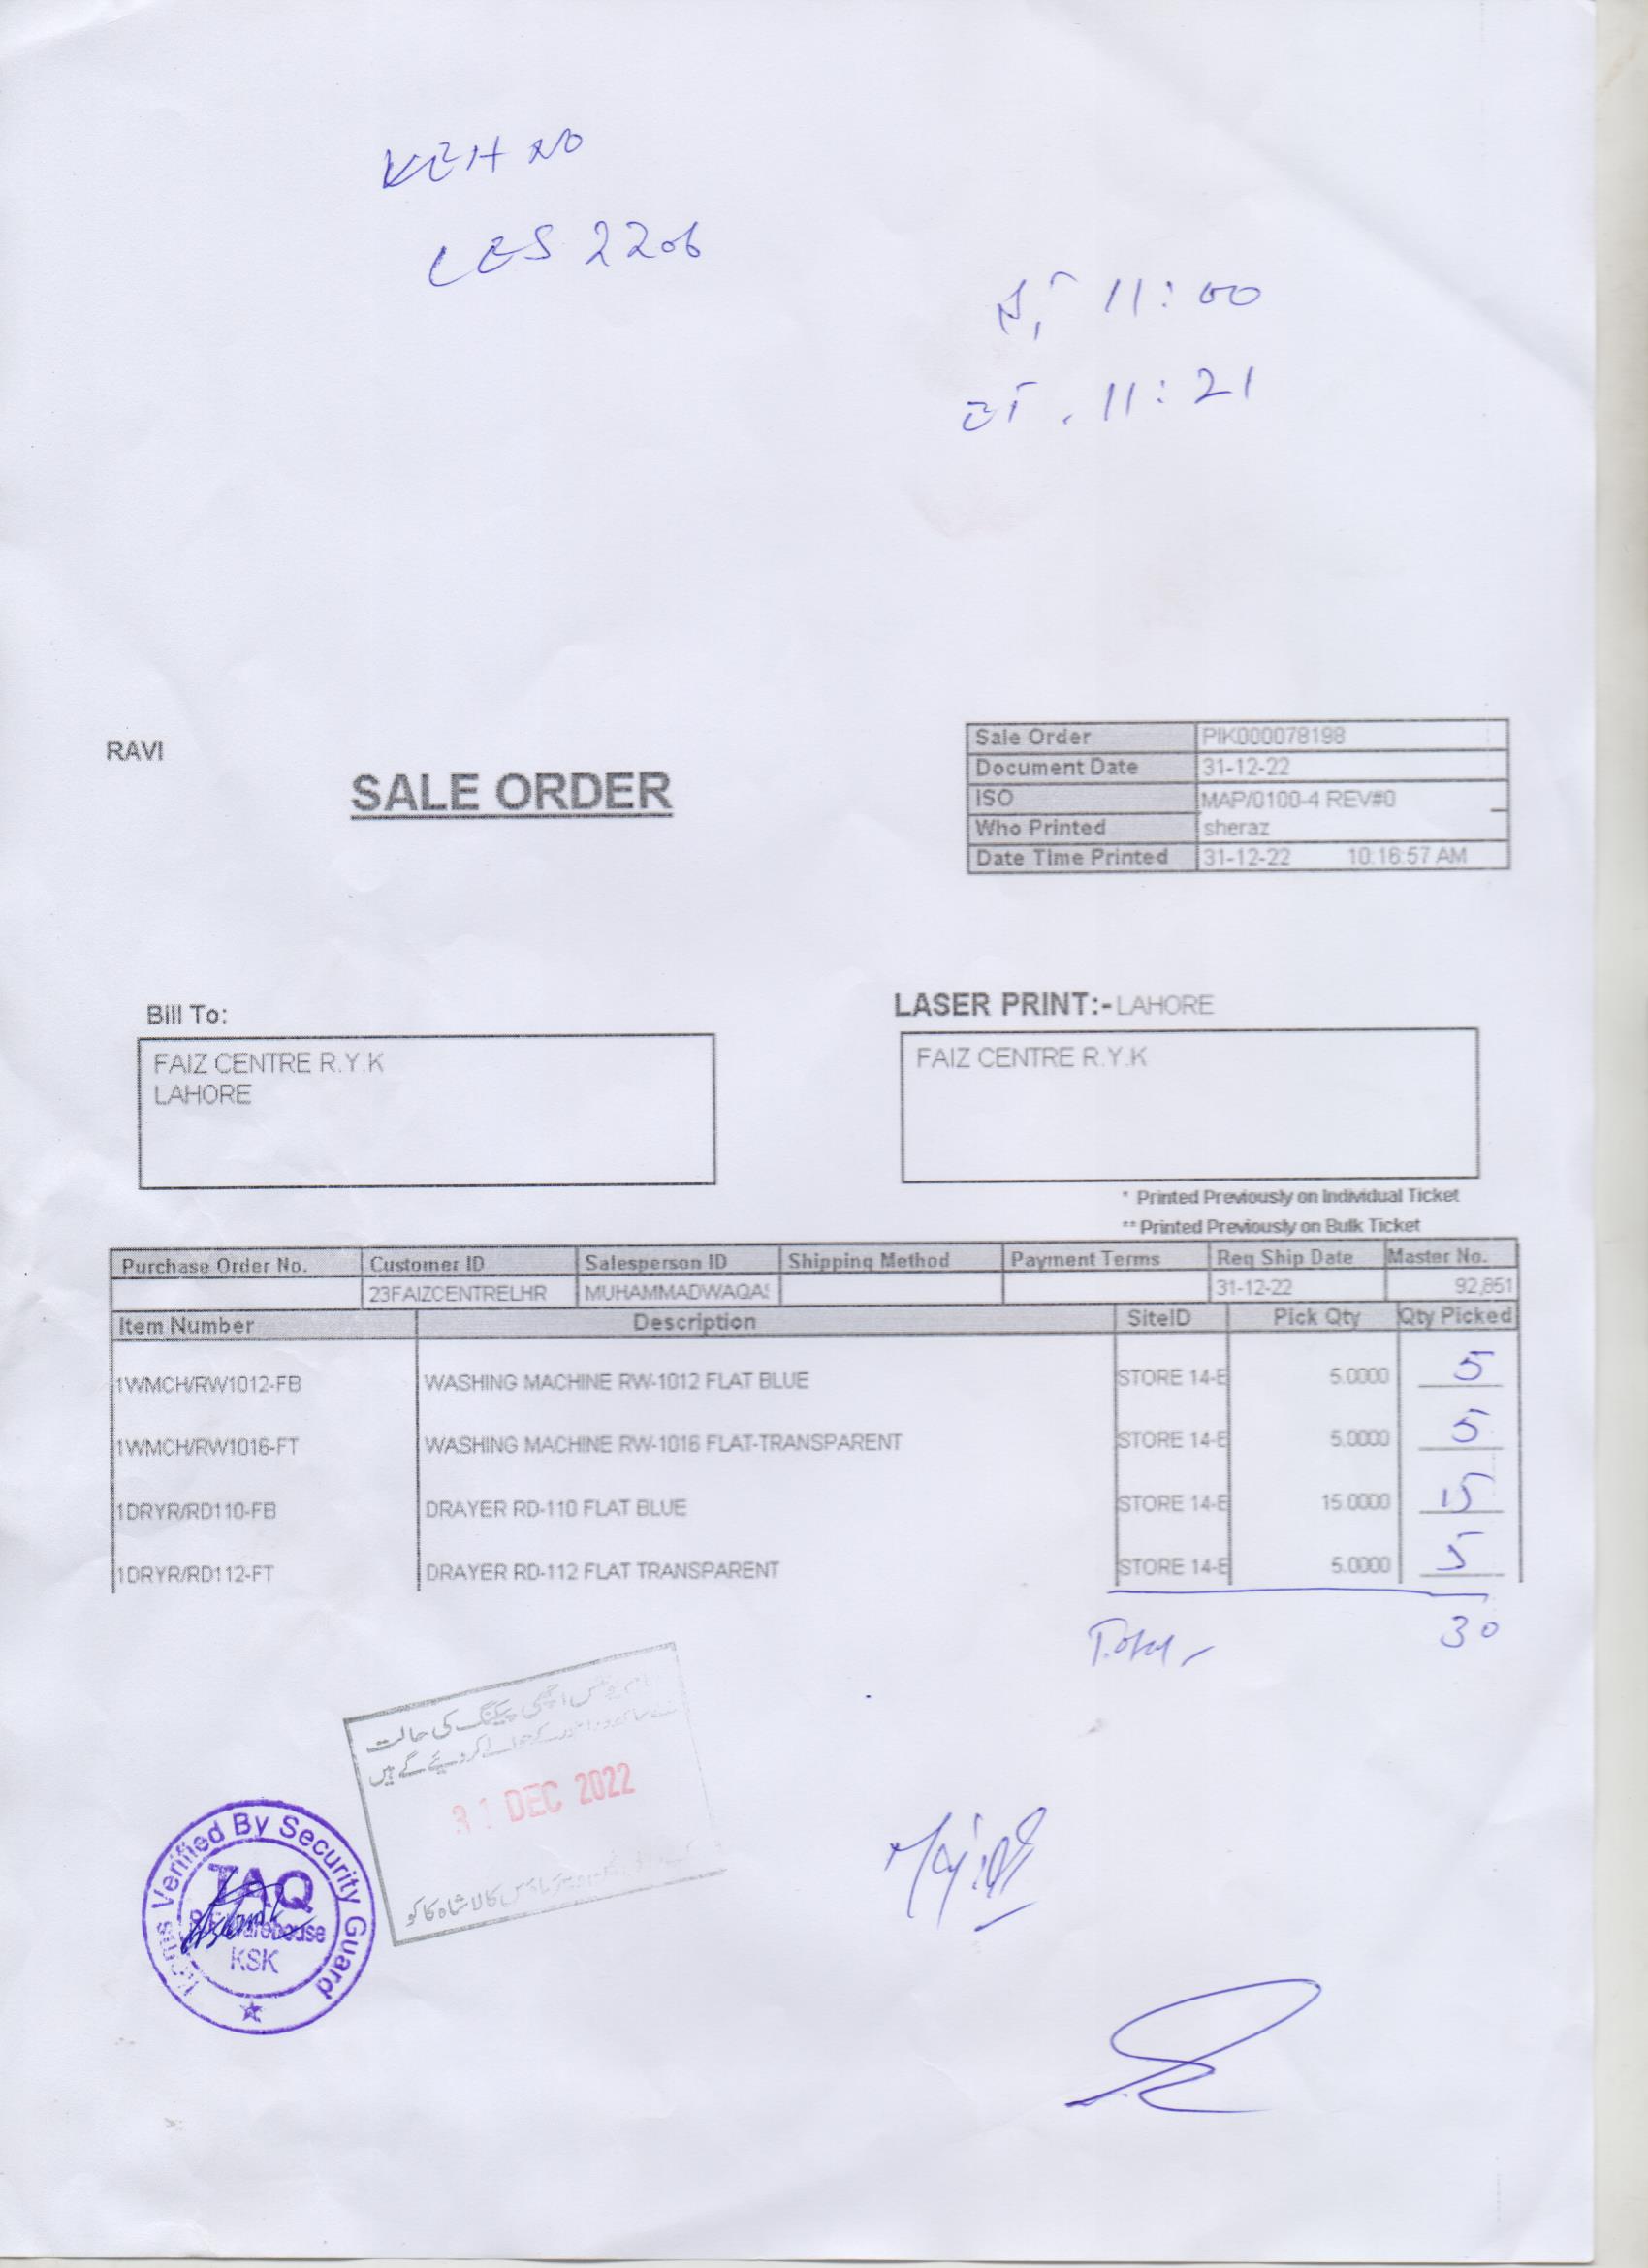 KEH NO
LES 2206
11:00
11:21
RAVI
SALE ORDER
Sale Order PIK000078198
Document Date 31-12-22
ISO MAP/0100-4 REV#0
Who Printed sheraz
Date Time Printed 31-12-22 10:16:57 AM
Bill To:
LASER PRINT:- LAHORE
FAIZ CENTRE R.Y.K
LAHORE
FAIZ CENTRE R.Y.K
* Printed Previously on Individual Ticket
** Printed Previously on Bulk Ticket
Purchase Order No. Customer ID Salesperson ID Shipping Method Payment Terms Req Ship Date Master No.
23FAIZCENTRELHR MUHAMMADWAQAS 31-12-22 92,851
Item Number Description SiteID Pick Qty Qty Picked
1WMCH/RW1012-FB WASHING MACHINE RW-1012 FLAT BLUE STORE 14-E 5.0000 5
1WMCH/RW1016-FT WASHING MACHINE RW-1016 FLAT-TRANSPARENT STORE 14-E 5.0000 5
1DRYR/RD110-FB DRAYER RD-110 FLAT BLUE STORE 14-E 15.0000 15
1DRYR/RD112-FT DRAYER RD-112 FLAT TRANSPARENT STORE 14-E 5.0000 5
Total 30
اچھی پیکنگ کی حالت
کے حوالے کر دیئے گئے ہیں
31 DEC 2022
کالا شاہ کاکو
Items Verified By Security Guard
TAQ
Warehouse
KSK
Majid